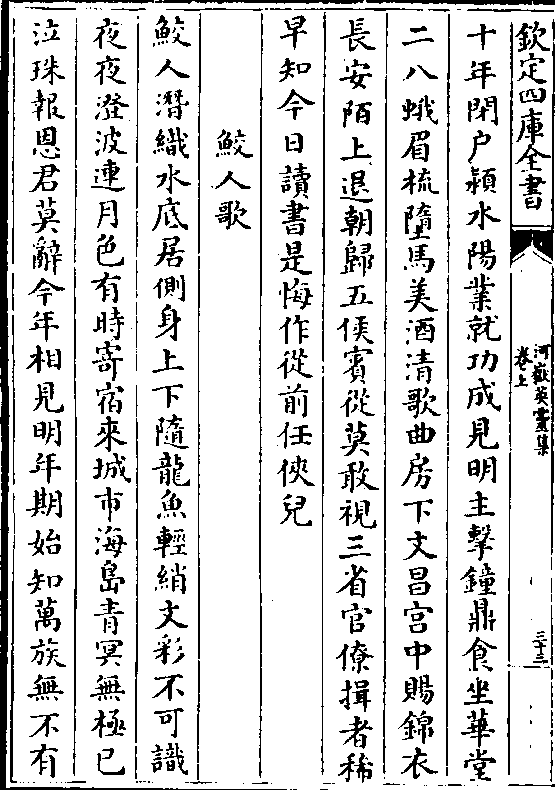 欽定四庫全書
河嶽英靈集
卷上
三十三
十年閉户潁水陽業就功成見明主擊鐘鼎食坐華堂
二八蛾眉梳墮馬美酒清歌曲房下文昌宫中賜錦衣
長安陌上退朝歸五侯賓從莫敢視三省官僚揖者稀
早知今日讀書是悔作從前任俠兒
鮫人歌
鮫人潛織水底居側身上下隨龍魚輕綃文彩不可識
夜夜澄波連月色有時寄宿來城市海島青冥無極已
泣珠報恩君莫辭今年相見明年期始知萬族無不有